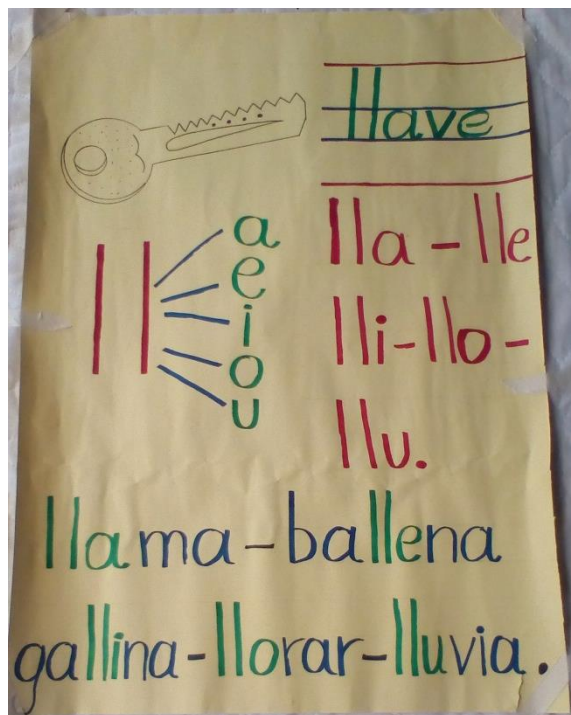 llave
ll
a
e
i
o
u
lla - lle
lli - llo -
llu.
llama - ballena
gallina - llorar - lluvia.